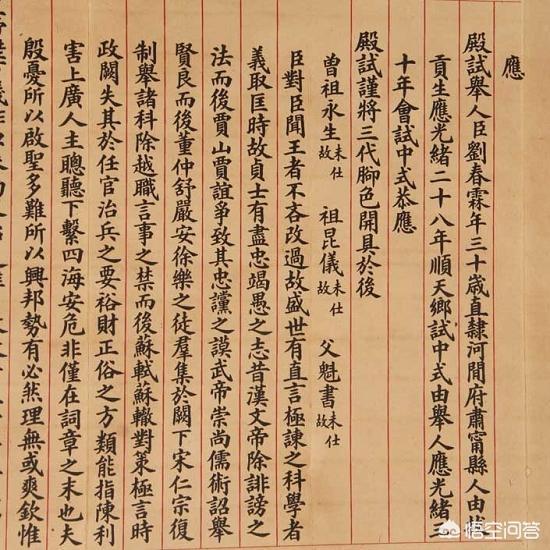 應
殿試舉人臣劉春霖年三十歲直隸河間府肅甯縣人由拔
貢生應光緒二十八年順天鄉試中式由舉人應光緒三
十年會試中式恭應
殿試謹將三代腳色開具於後
曾祖永生未仕故 祖昆儀未仕故 父魁書未仕故
臣對臣聞王者不吝改過故盛世有直言極諫之科學者
義取匡時故貞士有盡忠竭愚之志昔漢文帝除誹謗之
法而後賈山賈誼爭致其忠讜之謨武帝崇尚儒術詔舉
賢良而後董仲舒嚴安徐樂之徒羣集於闕下宋仁宗復
制舉諸科除越職言事之禁而後蘇軾蘇轍對策極言時
政闕失其於任官治兵之要裕財正俗之方類能指陳利
害上廣人主聰聽下繫四海安危非僅在詞章之末也夫
殷憂所以啟聖多難所以興邦勢有必然理無或爽欽惟
悟空问答